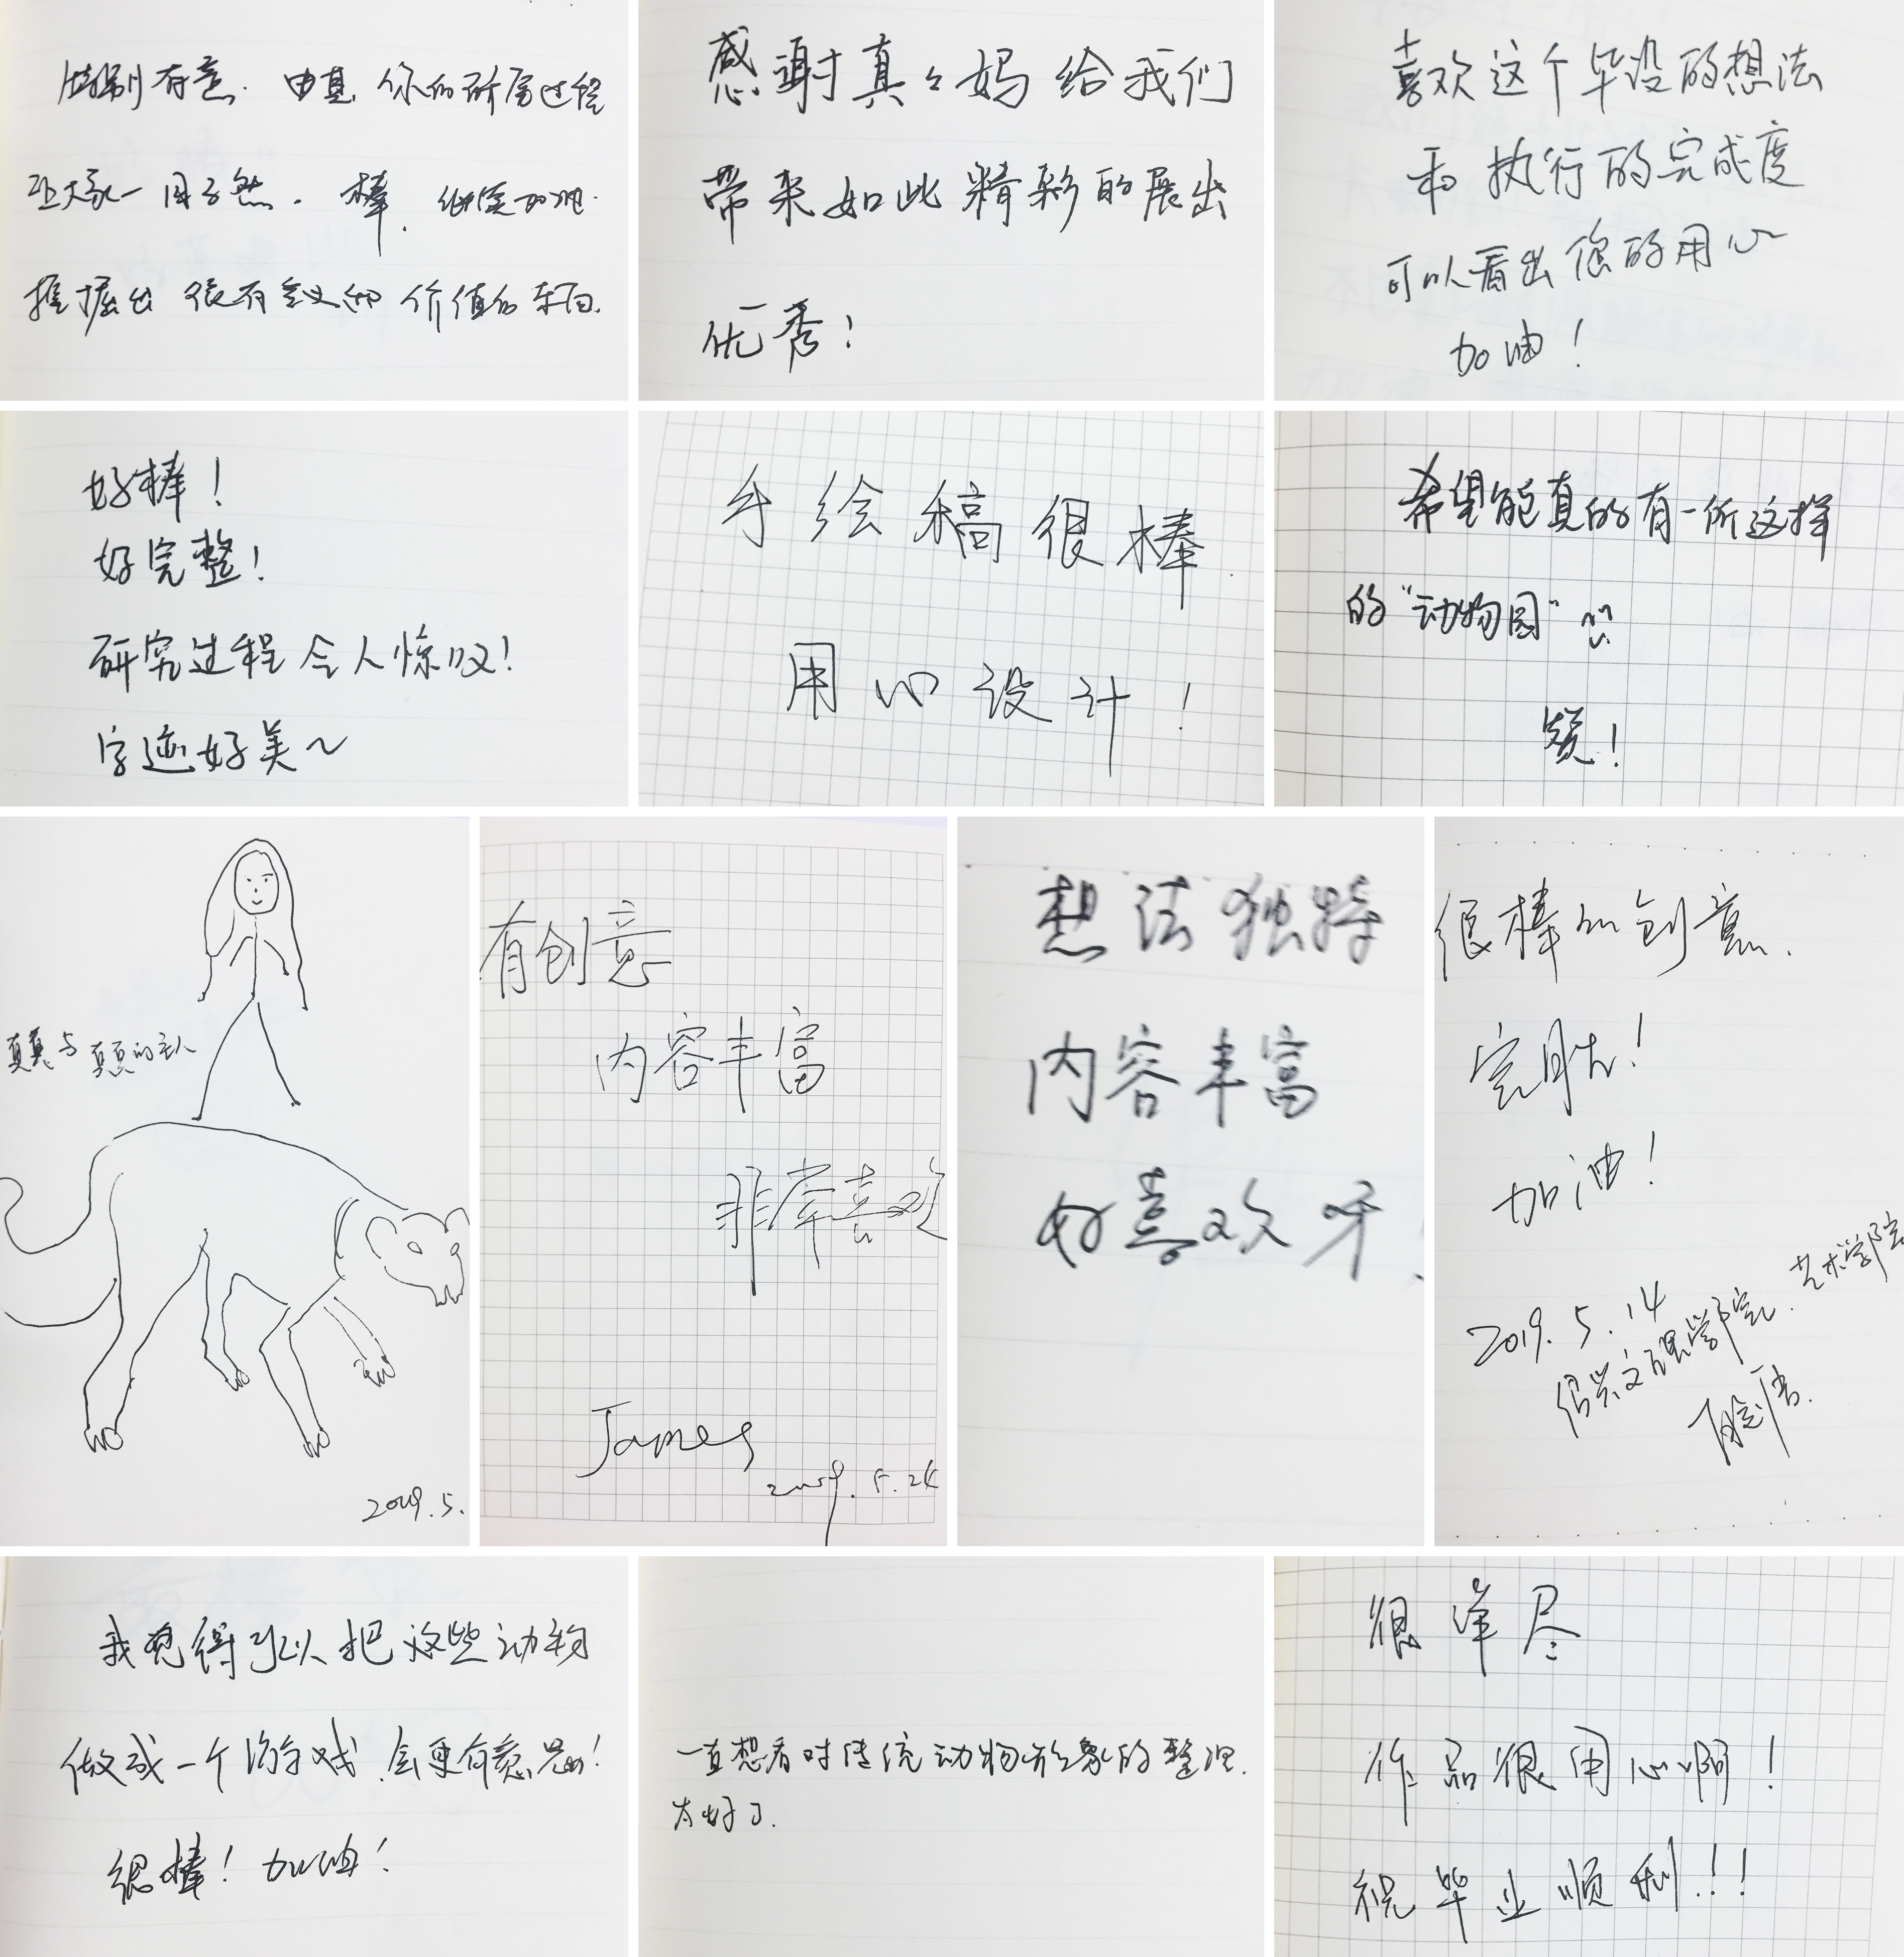 特别有意. 尤其 你的研究过程
让大家一目了然. 棒. 继续加油.
挖掘出 很有意义和 价值的东西.
感谢真々妈给我们
带来如此精彩的展出
优秀!
喜欢这个毕设的想法
和执行的完成度
可以看出您的用心
加油!
好棒!
好完整!
研究过程令人惊叹!
字迹好美~
手绘稿很棒
用心设计!
希望能真的有一所这样
的“动物园”
赞!
真真与真真的主人
2019.5.
有创意
内容丰富
非常喜欢
James
2019.5.24
想法独特
内容丰富
好喜欢呀!
很棒的创意.
完胜!
加油!
2019.5.14
绍兴文理学院.艺术学院
我觉得可以把这些动物
做成一个游戏.会更有意思!
很棒!加油!
一直想看对传统动物形象的整理.
太好了.
很详尽
作品很用心啊!
祝毕业顺利!!!